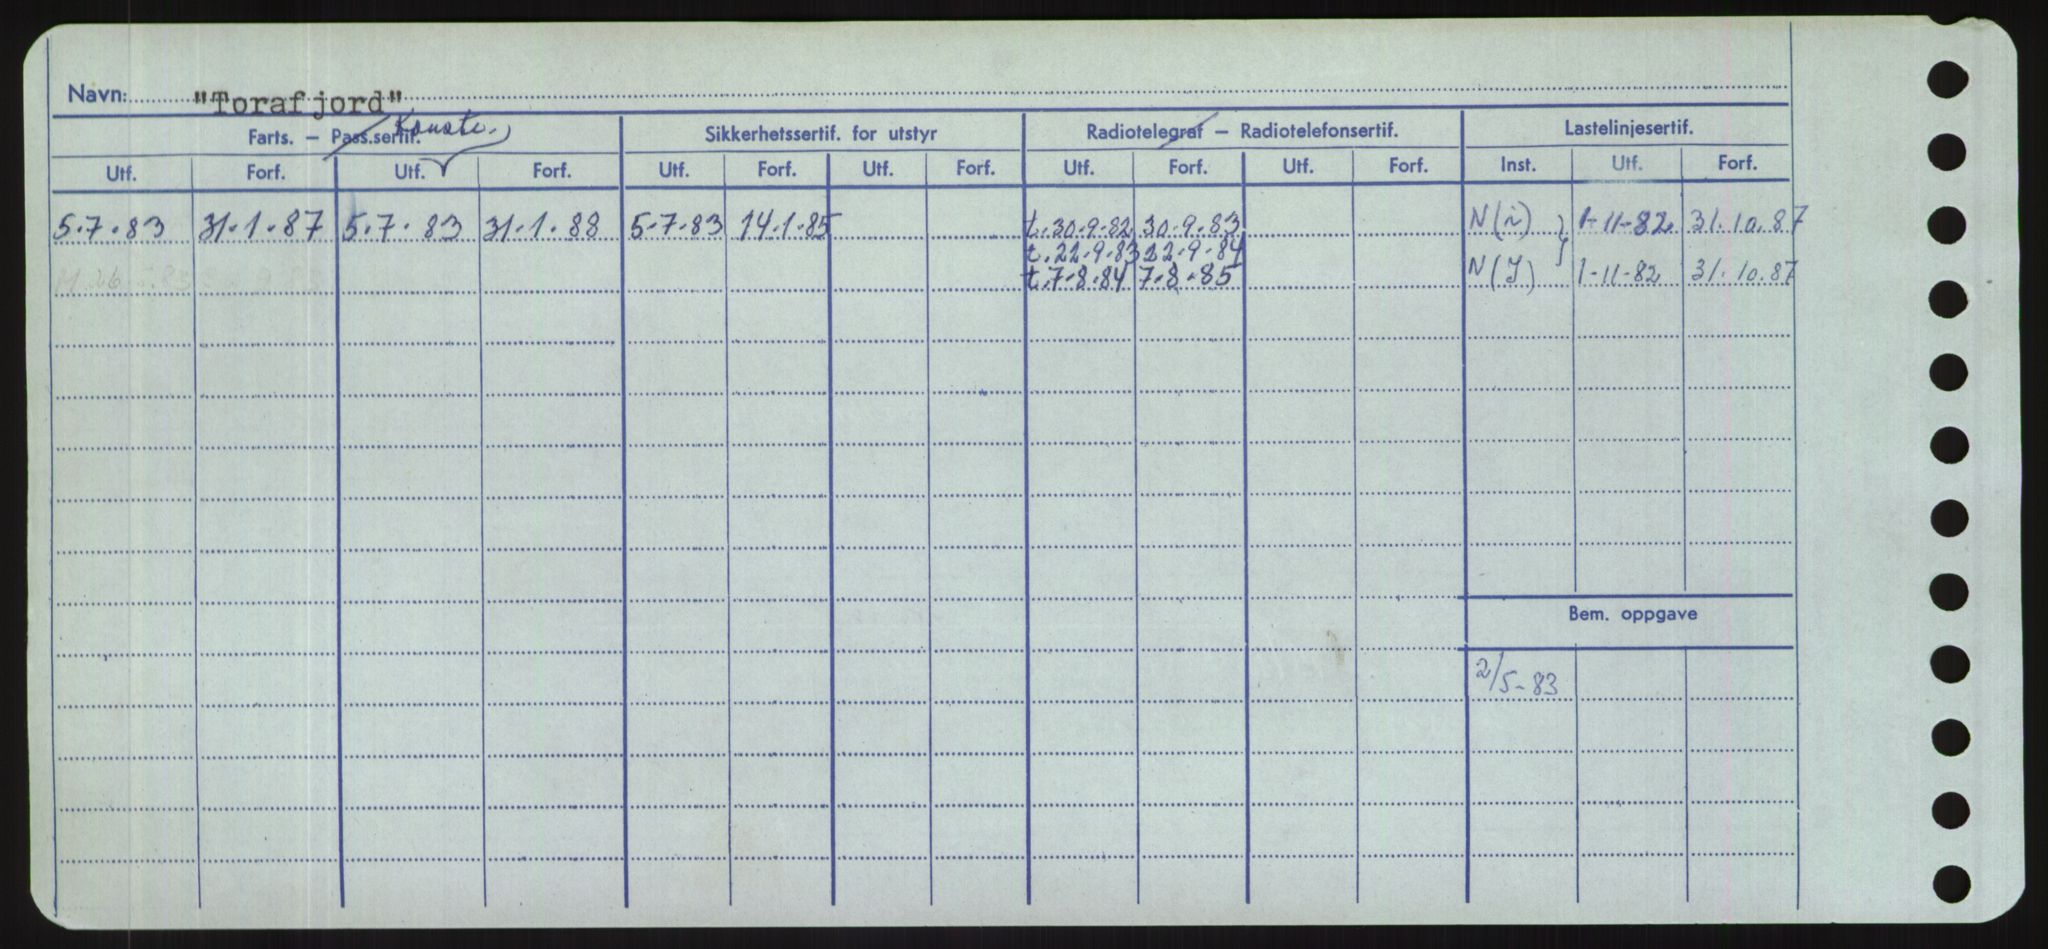 Navn: "Torafjord"
Farts. – Pass.sertif. Konstr. Sikkerhetssertif. for utstyr Radiotelegraf – Radiotelefonsertif. Lastelinjesertif.
Utf. Forf. Utf. Forf. Utf. Forf. Utf. Forf. Utf. Forf. Utf. Forf. Inst. Utf. Forf.
5.7.83 31.1.87 5.7.83 31.1.88 5.7.83 14.1.85 t.30.9.82 30.9.83 N(i) 1-11-82 31.10.87
t.22.9.83 22.9.84
t.7.8.84 7.8.85 N(J) 1-11-82 31.10.87
Bem. oppgave
2/5-83